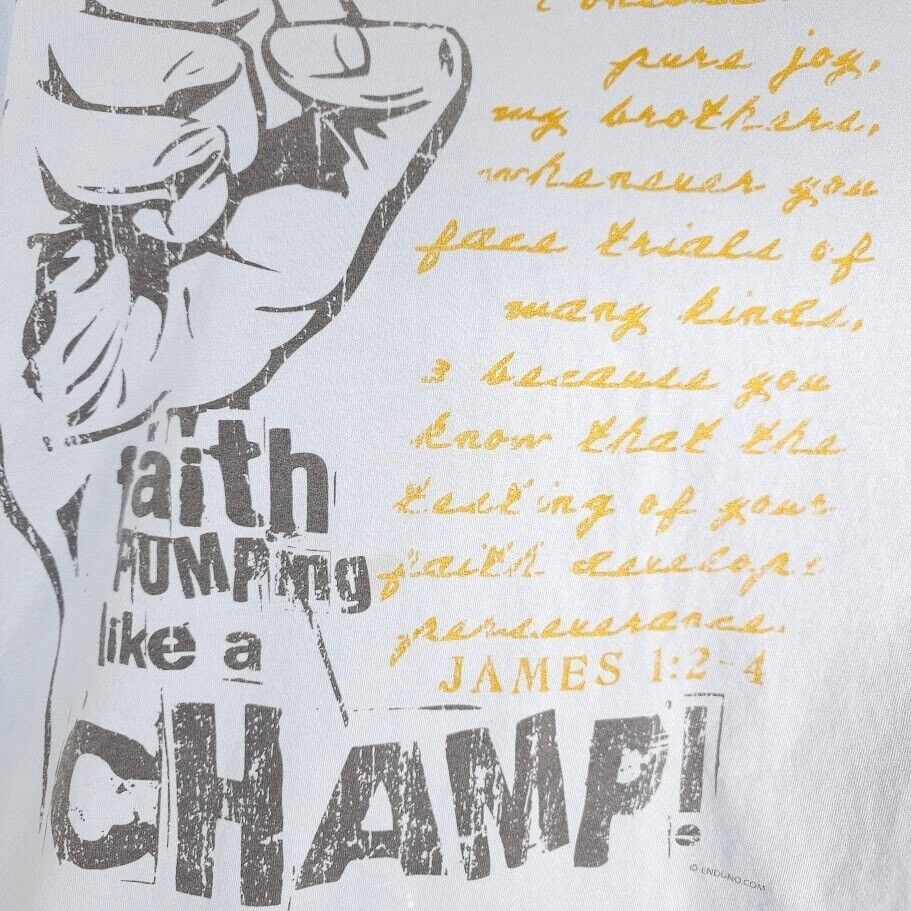 pure joy,
my brothers,
whenever you
face trials of
many kinds,
3 because you
know that the
testing of your
faith develops
perseverance.
JAMES 1:2-4
faith
PUMPing
like a
CHAMP!
© ENDUNO.COM